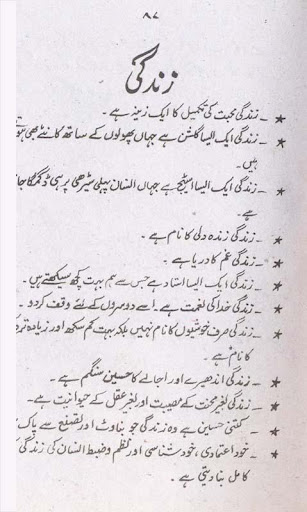 ۸۷
زندگی
★ ـ زندگی محبت کی تکمیل کا ایک زینہ ہے ۔
★ ـ زندگی ایک ایسا گلشن ہے جہاں پھولوں کے ساتھ کانٹے بھی ہوتے
ہیں ۔
★ ـ زندگی ایک ایسا اسٹیج ہے جہاں انسان پہلی سیڑھی پر ہی ڈگمگا جاتا
ہے ۔
★ ـ زندگی زندہ دلی کا نام ہے ۔
★ ـ زندگی غم کا دریا ہے ۔
★ ـ زندگی ایک ایسا استاد ہے جس سے ہم بہت کچھ سیکھتے ہیں ۔
★ ـ زندگی خدا کی نعمت ہے ۔ اسے دوسروں کے لئے وقف کر دو ۔
★ ـ زندگی صرف خوشیوں کا نام نہیں بلکہ بہت کم سکھ اور زیادہ تر
کا نام ہے ۔
★ ـ زندگی اندھیرے اور اجالے کا حسین سنگم ہے ۔
★ ـ زندگی بغیر محنت کے مصیبت اور بغیر عقل کے حیوانیت ہے ۔
★ ـ کتنی حسین ہے وہ زندگی جو بناوٹ اور تصنع سے پاک
★ ـ خود اعتمادی ، خود شناسی اور نظم و ضبط انسان کی زندگی
کامل بنا دیتی ہے ۔